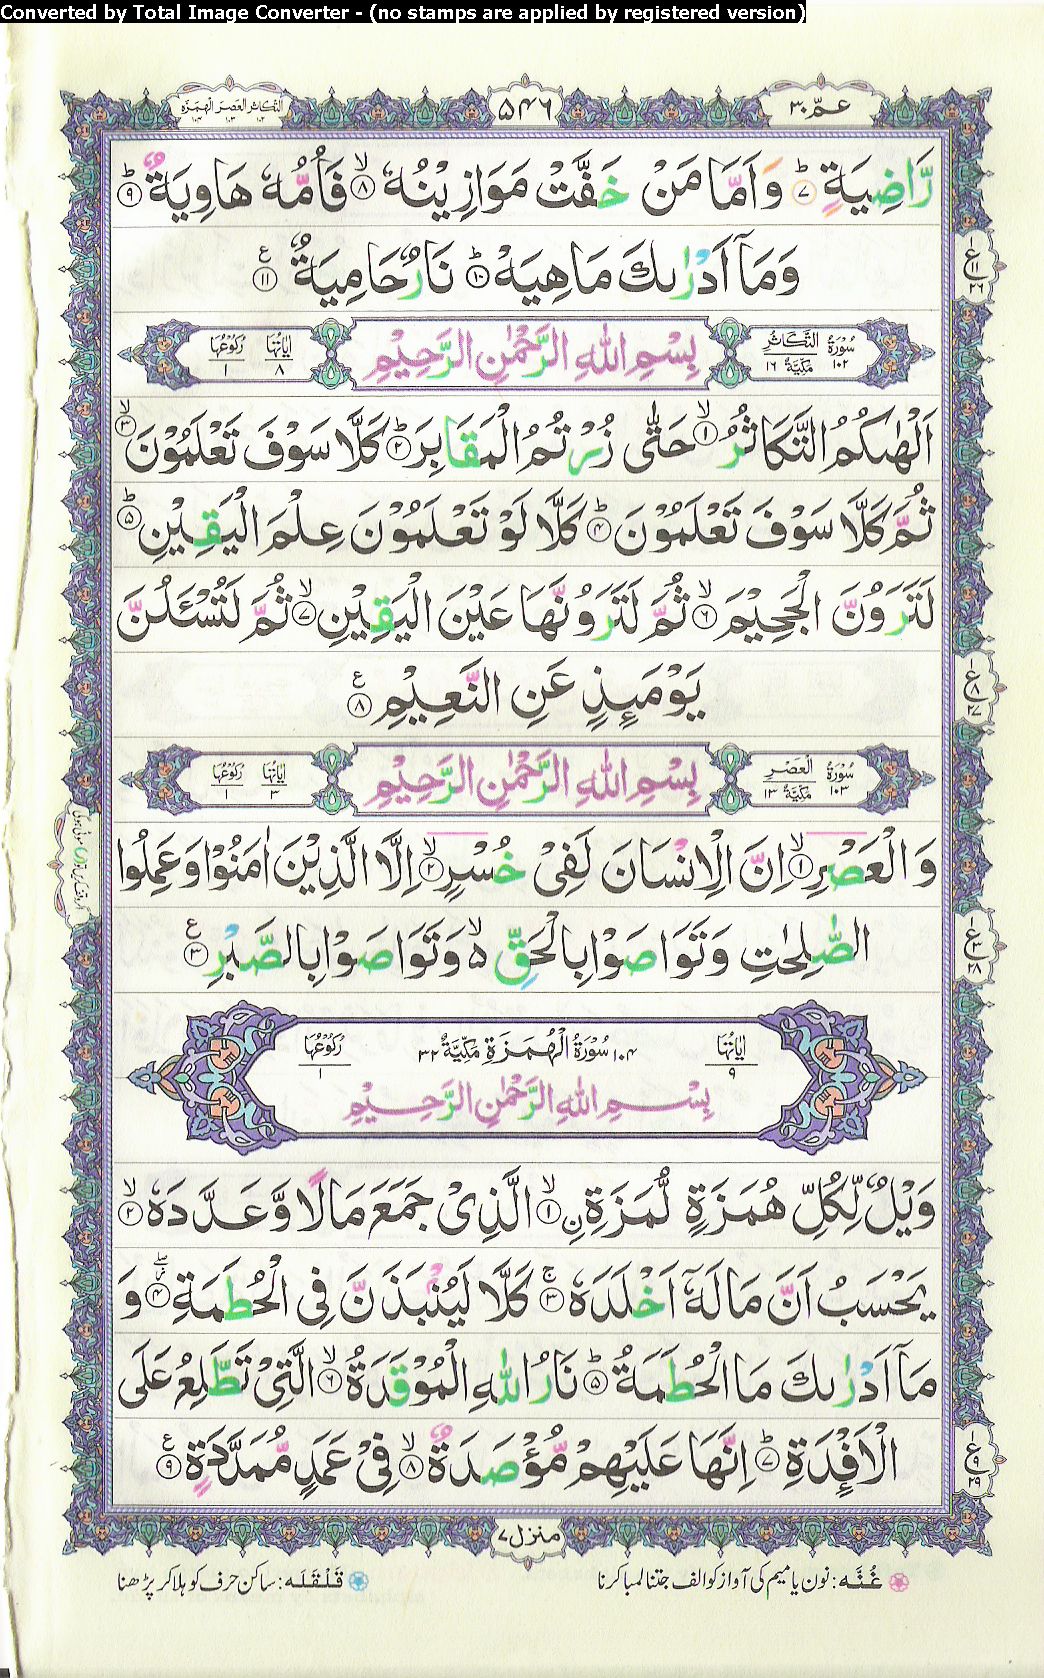 Converted by Total Image Converter - (no stamps are applied by registered version)
عمّ ۳۰
۵۴۶
التكاثر العصر الهمزة
۱۰۲ ۱۰۳ ۱۰۴
رَّاضِيَةٍ ؕ‏﴿۷﴾ وَاَمَّا مَنْ خَفَّتْ مَوَازِيْنُهٗ ۙ‏﴿۸﴾ فَاُمُّهٗ هَاوِيَةٌ ؕ‏﴿۹﴾
وَمَاۤ اَدْرٰىكَ مَاهِيَهْ ؕ‏﴿۱۰﴾ نَارٌ حَامِيَةٌ ﴿۱۱﴾
ع ۱ ۱۱ ۲۶
سُوْرَةُ التَّكَاثُرِ ۱۰۲ مَكِّيَّةٌ ۱۶
بِسْمِ اللّٰهِ الرَّحْمٰنِ الرَّحِيْمِ
اٰيَاتُهَا ۸ رُكُوْعُهَا ۱
اَلْهٰىكُمُ التَّكَاثُرُ ۙ‏﴿۱﴾ حَتّٰى زُرْتُمُ الْمَقَابِرَ ؕ‏﴿۲﴾ كَلَّا سَوْفَ تَعْلَمُوْنَ ۙ‏﴿۳﴾
ثُمَّ كَلَّا سَوْفَ تَعْلَمُوْنَ ؕ‏﴿۴﴾ كَلَّا لَوْ تَعْلَمُوْنَ عِلْمَ الْيَقِيْنِ ؕ‏﴿۵﴾
لَتَرَوُنَّ الْجَحِيْمَ ۙ‏﴿۶﴾ ثُمَّ لَتَرَوُنَّهَا عَيْنَ الْيَقِيْنِ ۙ‏﴿۷﴾ ثُمَّ لَتُسْـَٔلُنَّ
يَوْمَٮِٕذٍ عَنِ النَّعِيْمِ ﴿۸﴾
ع ۱ ۸ ۲۷
سُوْرَةُ الْعَصْرِ ۱۰۳ مَكِّيَّةٌ ۱۳
بِسْمِ اللّٰهِ الرَّحْمٰنِ الرَّحِيْمِ
اٰيَاتُهَا ۳ رُكُوْعُهَا ۱
وَالْعَصْرِ ۙ‏﴿۱﴾ اِنَّ الْاِنْسَانَ لَفِىْ خُسْرٍ ۙ‏﴿۲﴾ اِلَّا الَّذِيْنَ اٰمَنُوْا وَعَمِلُوا
الصّٰلِحٰتِ وَتَوَاصَوْا بِالْحَقِّ ۙ۬ وَتَوَاصَوْا بِالصَّبْرِ ﴿۳﴾
ع ۱ ۳ ۲۸
اٰيَاتُهَا ۹
۱۰۴ سُوْرَةُ الْهُمَزَةِ مَكِّيَّةٌ ۳۲
رُكُوْعُهَا ۱
بِسْمِ اللّٰهِ الرَّحْمٰنِ الرَّحِيْمِ
وَيْلٌ لِّكُلِّ هُمَزَةٍ لُّمَزَةِ ۟ۙ‏﴿۱﴾ الَّذِىْ جَمَعَ مَالًا وَّعَدَّدَهٗ ۙ‏﴿۲﴾
يَحْسَبُ اَنَّ مَالَهٗۤ اَخْلَدَهٗ‌ ۚ‏﴿۳﴾ كَلَّا‌ لَيُنْۢبَذَنَّ فِى الْحُطَمَةِ ﴿۴﴾ وَ
مَاۤ اَدْرٰىكَ مَا الْحُطَمَةُ ؕ‏﴿۵﴾ نَارُ اللّٰهِ الْمُوْقَدَةُ ۙ‏﴿۶﴾ الَّتِىْ تَطَّلِعُ عَلَى
الْاَفْـِٕدَةِ ؕ‏﴿۷﴾ اِنَّهَا عَلَيْهِمْ مُّؤْصَدَةٌ ۙ‏﴿۸﴾ فِىْ عَمَدٍ مُّمَدَّدَةٍ ﴿۹﴾
ع ۱ ۹ ۲۹
منزل ۷
غُنَّه: نون یا میم کی آواز کو الف جتنا لمبا کرنا
قَلْقَلَه: ساکن حرف کو ہلا کر پڑھنا